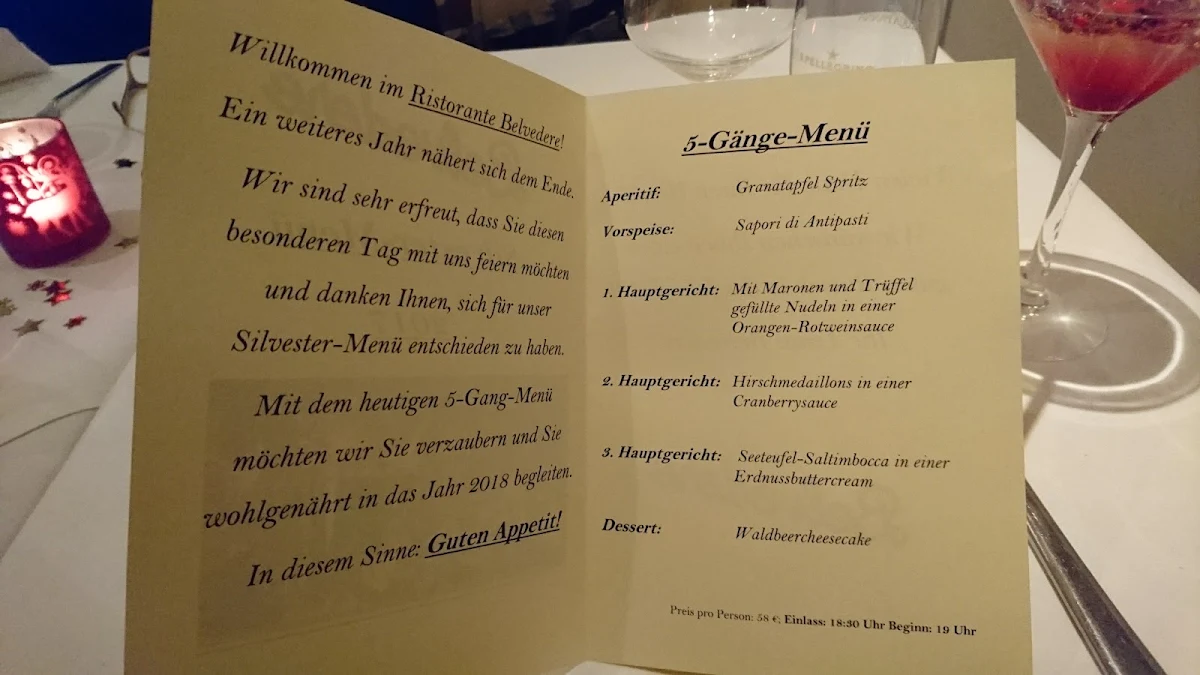 Willkommen im Ristorante Belvedere!
Ein weiteres Jahr nähert sich dem Ende.
Wir sind sehr erfreut, dass Sie diesen
besonderen Tag mit uns feiern möchten
und danken Ihnen, sich für unser
Silvester-Menü entschieden zu haben.
Mit dem heutigen 5-Gang-Menü
möchten wir Sie verzaubern und Sie
wohlgenährt in das Jahr 2018 begleiten.
In diesem Sinne: Guten Appetit!
5-Gänge-Menü
Aperitif: Granatapfel Spritz
Vorspeise: Sapori di Antipasti
1. Hauptgericht: Mit Maronen und Trüffel
gefüllte Nudeln in einer
Orangen-Rotweinsauce
2. Hauptgericht: Hirschmedaillons in einer
Cranberrysauce
3. Hauptgericht: Seeteufel-Saltimbocca in einer
Erdnussbuttercream
Dessert: Waldbeercheesecake
Preis pro Person: 58 €; Einlass: 18:30 Uhr Beginn: 19 Uhr